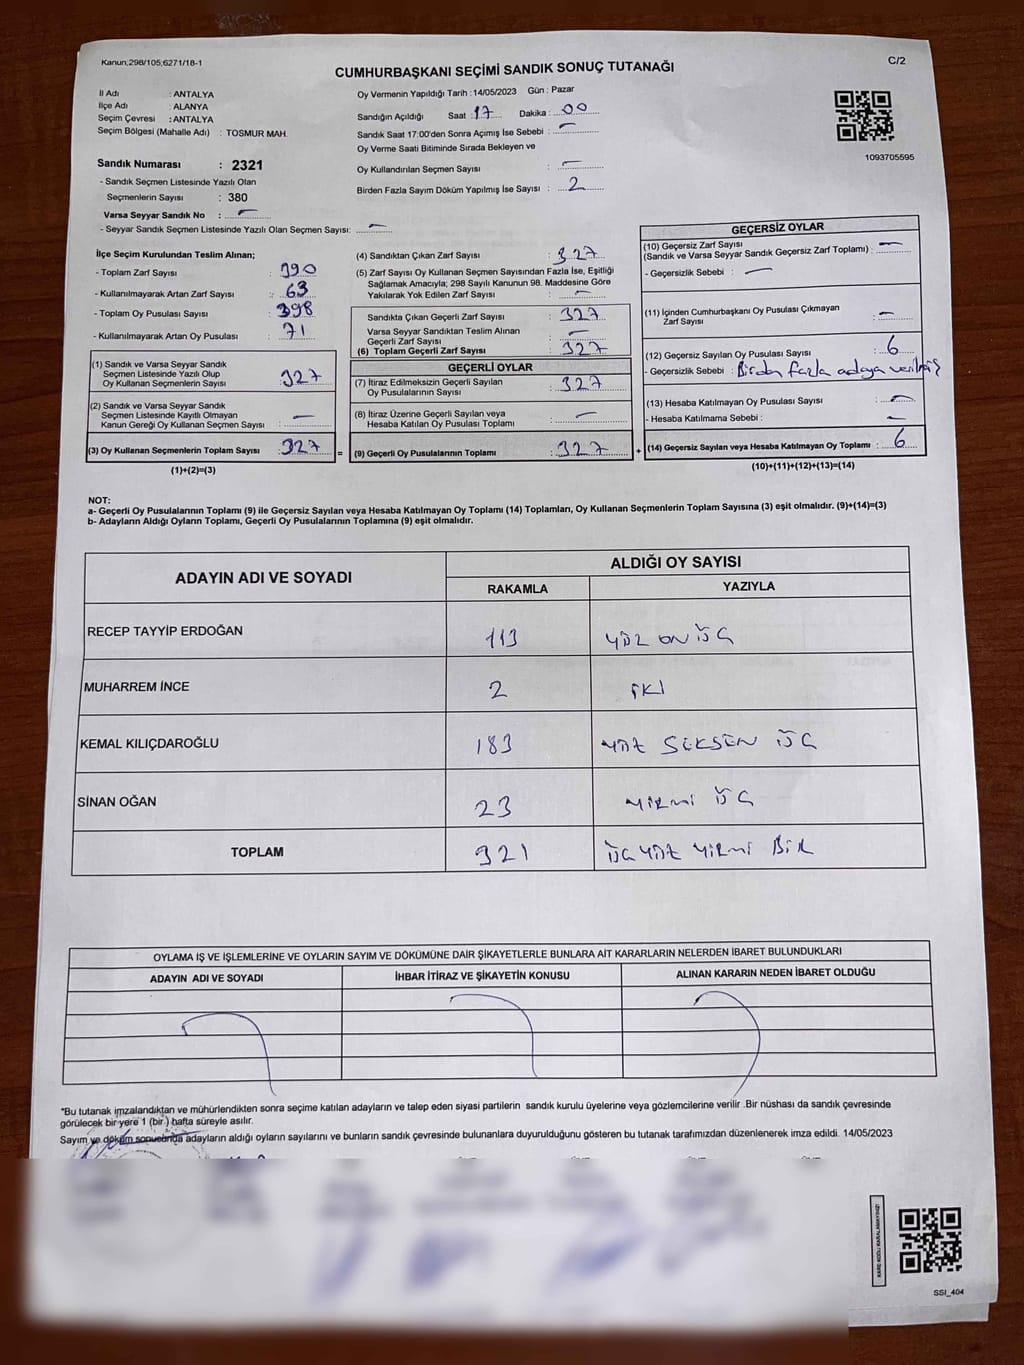 Kanun;298/105,6271/18-1
C/2
CUMHURBAŞKANI SEÇİMİ SANDIK SONUÇ TUTANAĞI
İl Adı : ANTALYA
İlçe Adı : ALANYA
Seçim Çevresi : ANTALYA
Seçim Bölgesi (Mahalle Adı) : TOSMUR MAH.
Sandık Numarası : 2321
- Sandık Seçmen Listesinde Yazılı Olan
Seçmenlerin Sayısı : 380
Varsa Seyyar Sandık No : —
- Seyyar Sandık Seçmen Listesinde Yazılı Olan Seçmen Sayısı: —
Oy Vermenin Yapıldığı Tarih :14/05/2023 Gün : Pazar
Sandığın Açıldığı Saat :17 Dakika :00
Sandık Saat 17:00'den Sonra Açımış İse Sebebi : —
Oy Verme Saati Bitiminde Sırada Bekleyen ve
Oy Kullandırılan Seçmen Sayısı : —
Birden Fazla Sayım Döküm Yapılmış İse Sayısı : 2
1093705595
İlçe Seçim Kurulundan Teslim Alınan;
- Toplam Zarf Sayısı : 390
- Kullanılmayarak Artan Zarf Sayısı : 63
- Toplam Oy Pusulası Sayısı : 398
- Kullanılmayarak Artan Oy Pusulası : 71
(1) Sandık ve Varsa Seyyar Sandık
Seçmen Listesinde Yazılı Olup
Oy Kullanan Seçmenlerin Sayısı : 327
(2) Sandık ve Varsa Seyyar Sandık
Seçmen Listesinde Kayıtlı Olmayan
Kanun Gereği Oy Kullanan Seçmen Sayısı : —
(3) Oy Kullanan Seçmenlerin Toplam Sayısı : 327
(1)+(2)=(3)
=
(4) Sandıktan Çıkan Zarf Sayısı : 327
(5) Zarf Sayısı Oy Kullanan Seçmen Sayısından Fazla İse, Eşitliği
Sağlamak Amacıyla; 298 Sayılı Kanunun 98. Maddesine Göre
Yakılarak Yok Edilen Zarf Sayısı : —
Sandıkta Çıkan Geçerli Zarf Sayısı : 327
Varsa Seyyar Sandıktan Teslim Alınan
Geçerli Zarf Sayısı : —
(6) Toplam Geçerli Zarf Sayısı : 327
GEÇERLİ OYLAR
(7) İtiraz Edilmeksizin Geçerli Sayılan
Oy Pusulalarının Sayısı : 327
(8) İtiraz Üzerine Geçerli Sayılan veya
Hesaba Katılan Oy Pusulası Toplamı : —
(9) Geçerli Oy Pusulalarının Toplamı : 327
+
GEÇERSİZ OYLAR
(10) Geçersiz Zarf Sayısı
(Sandık ve Varsa Seyyar Sandık Geçersiz Zarf Toplamı) : —
- Geçersizlik Sebebi : —
(11) İçinden Cumhurbaşkanı Oy Pusulası Çıkmayan
Zarf Sayısı : —
(12) Geçersiz Sayılan Oy Pusulası Sayısı : 6
- Geçersizlik Sebebi : Birden fazla adaya verilmiş
(13) Hesaba Katılmayan Oy Pusulası Sayısı : —
- Hesaba Katılmama Sebebi : —
(14) Geçersiz Sayılan veya Hesaba Katılmayan Oy Toplamı : 6
(10)+(11)+(12)+(13)=(14)
NOT:
a- Geçerli Oy Pusulalarının Toplamı (9) ile Geçersiz Sayılan veya Hesaba Katılmayan Oy Toplamı (14) Toplamları, Oy Kullanan Seçmenlerin Toplam Sayısına (3) eşit olmalıdır. (9)+(14)=(3)
b- Adayların Aldığı Oyların Toplamı, Geçerli Oy Pusulalarının Toplamına (9) eşit olmalıdır.
ADAYIN ADI VE SOYADI
ALDIĞI OY SAYISI
RAKAMLA YAZIYLA
RECEP TAYYİP ERDOĞAN 113 YÜZ ON ÜÇ
MUHARREM İNCE 2 İKİ
KEMAL KILIÇDAROĞLU 183 YÜZ SEKSEN ÜÇ
SİNAN OĞAN 23 YİRMİ ÜÇ
TOPLAM 321 ÜÇ YÜZ YİRMİ BİR
OYLAMA İŞ VE İŞLEMLERİNE VE OYLARIN SAYIM VE DÖKÜMÜNE DAİR ŞİKAYETLERLE BUNLARA AİT KARARLARIN NELERDEN İBARET BULUNDUKLARI
ADAYIN ADI VE SOYADI İHBAR İTİRAZ VE ŞİKAYETİN KONUSU ALINAN KARARIN NEDEN İBARET OLDUĞU
*Bu tutanak imzalandıktan ve mühürlendikten sonra seçime katılan adayların ve talep eden siyasi partilerin sandık kurulu üyelerine veya gözlemcilerine verilir .Bir nüshası da sandık çevresinde
görülecek bir yere 1 (bir ) hafta süreyle asılır.
Sayım ve döküm sonucunda adayların aldığı oyların sayılarını ve bunların sandık çevresinde bulunanlara duyurulduğunu gösteren bu tutanak tarafımızdan düzenlenerek imza edildi. 14/05/2023
KARE KODU KARALAMAYINIZ!
SSI_404